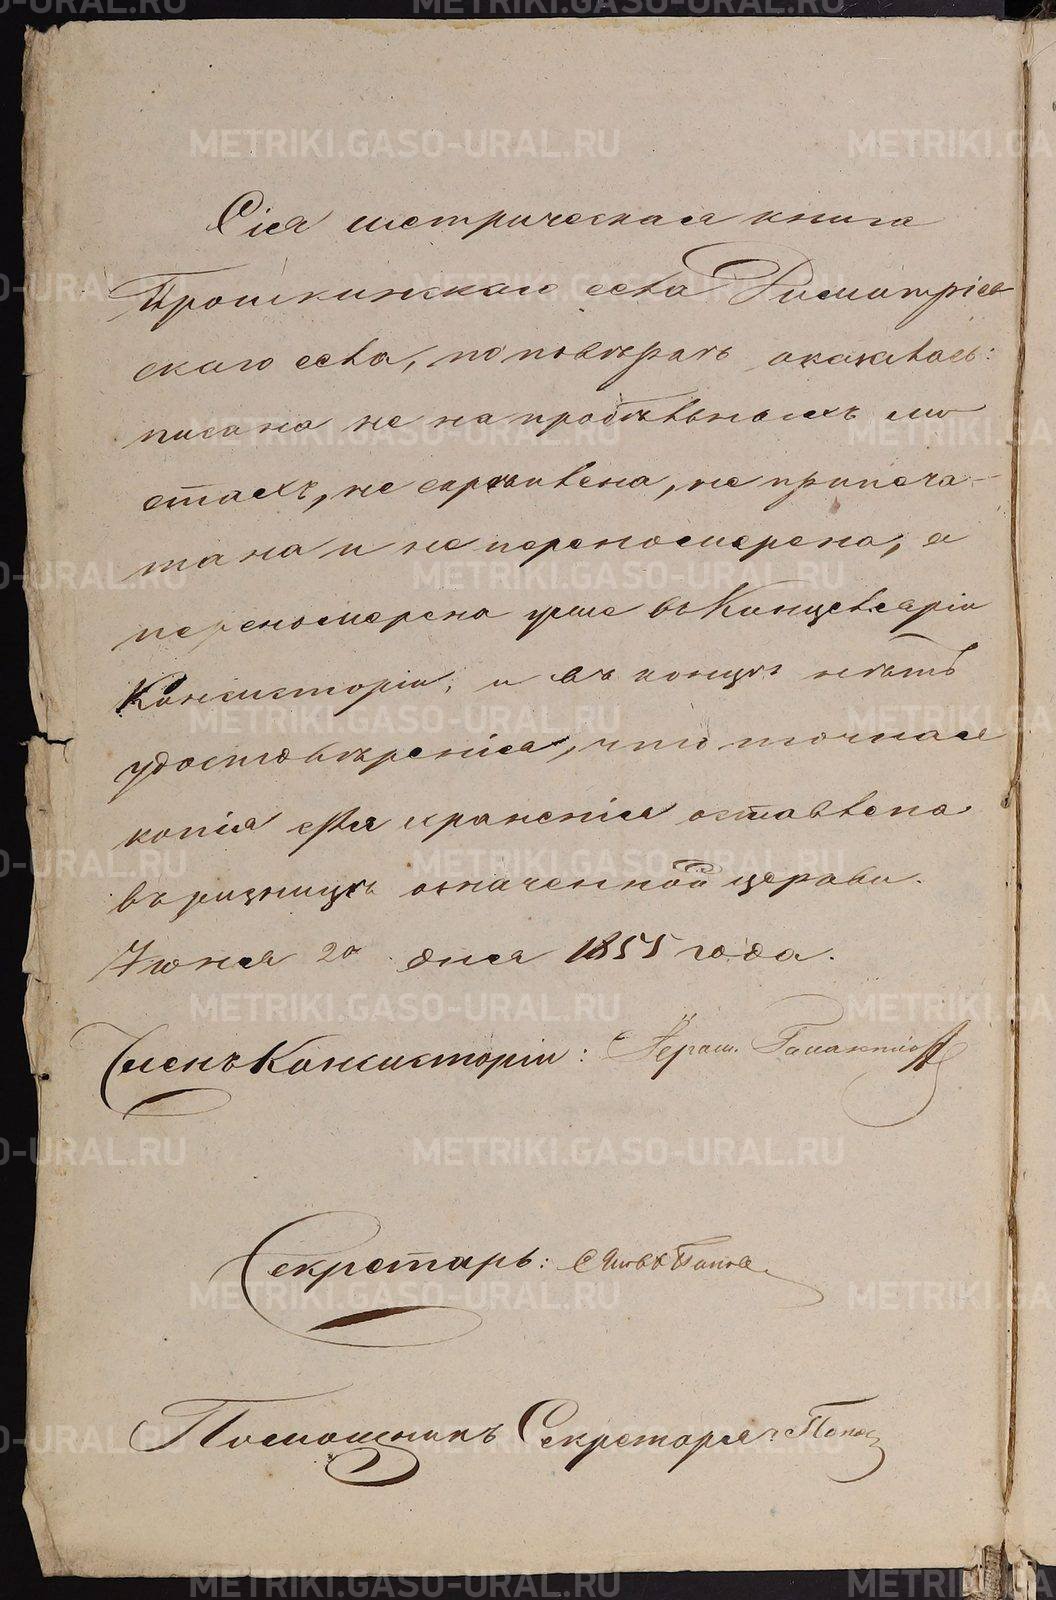 Сія метрическая книга
Прошкинскаго села Димитріев
скаго села, по повѣркѣ оказалась:
писана не на пробѣльныхъ ли
стахъ, не скрѣплена, не припеча-
тана и не перенумерена, а
перенумерена уже въ Канцеляріи
Консисторіи, и въ концѣ нѣтъ
удостовѣренія, что точная
копія для храненія оставлена
въ ризницѣ означенной церкви.
Іюня 20 дня 1855 года.
Членъ Консисторіи:
Секретарь: Попов
Помощникъ Секретаря: Попов
METRIKI.GASO-URAL.RU